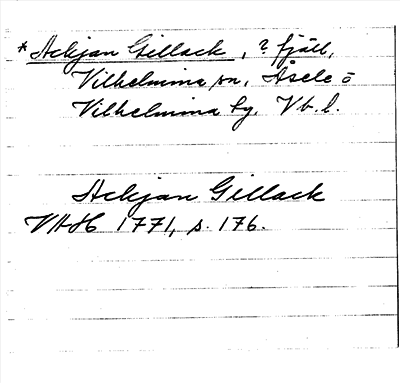 * Ackjan Gillack, ? fjäll,
Vilhelmina sn, Åsele o
Vilhelmina tg. Vb. l.
Ackjan Gillack
VAH 1771, s. 176.